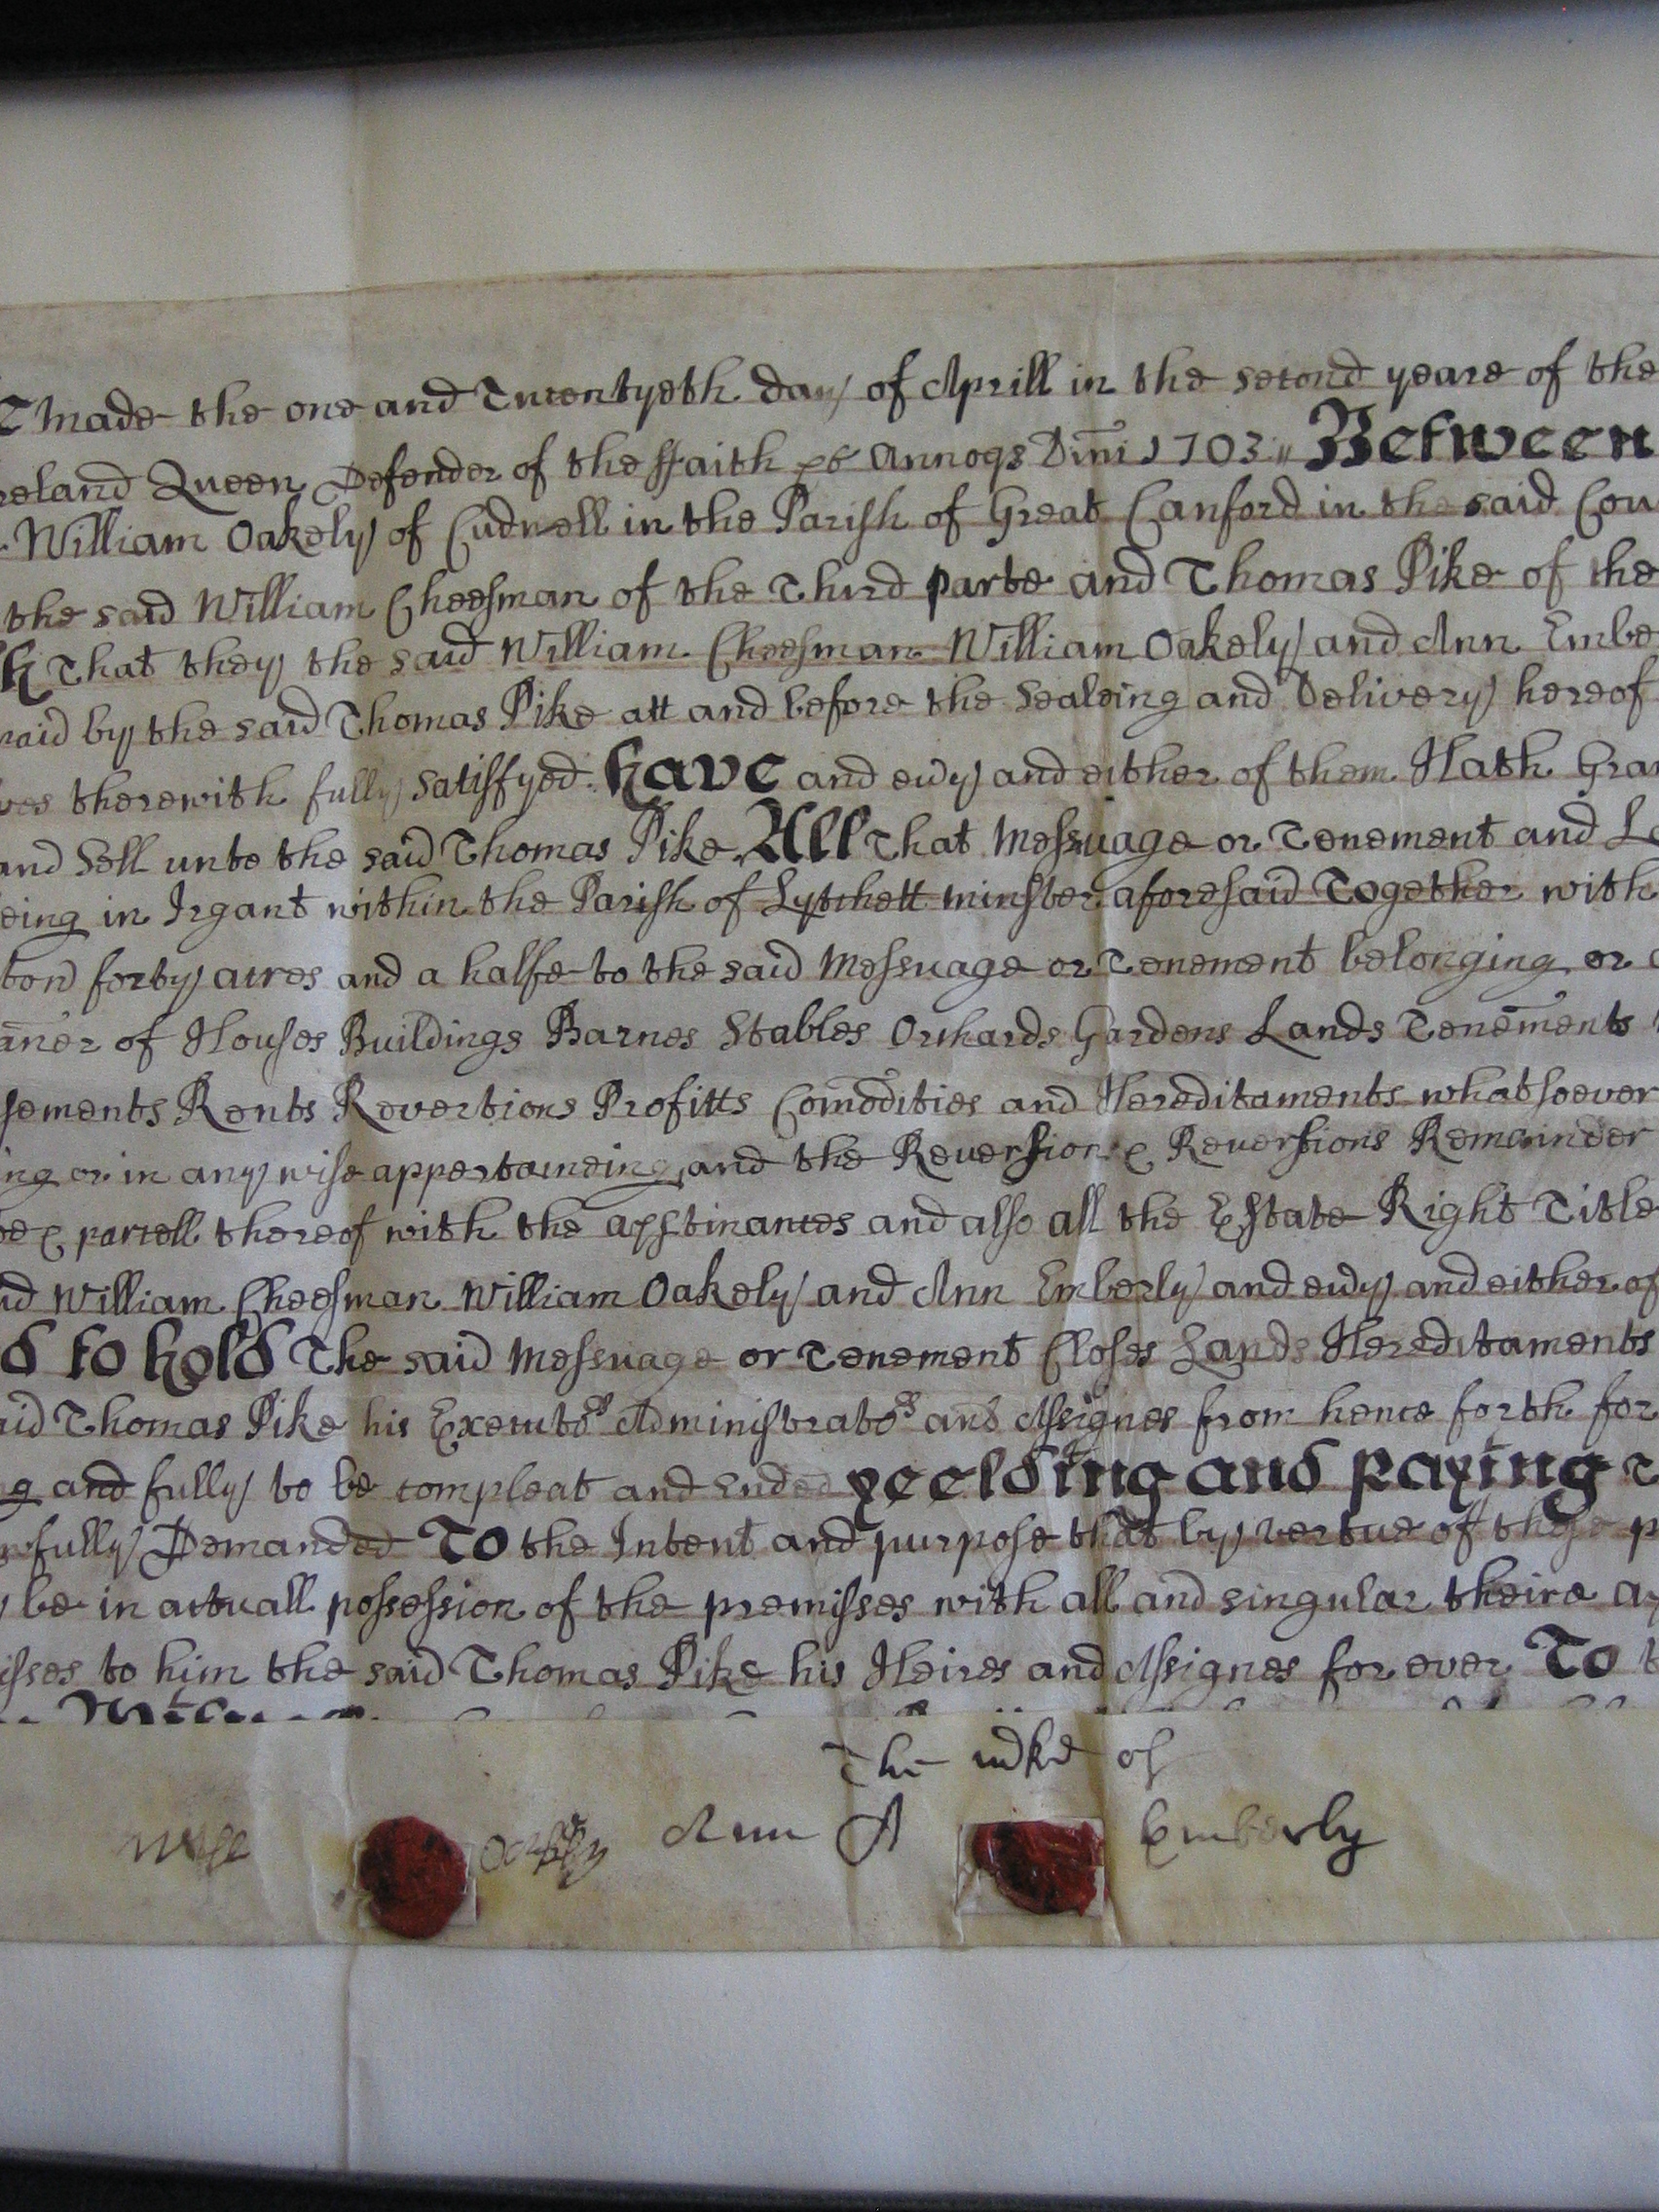 T Made the one and Twentyeth day of Aprill in the second yeare of the
reland Queen Defender of the ffaith &c Annoqs Dm̄i 1703 Between
William Oakely of Cudnell in the Parish of Great Canford in the said Cou
the said William Cheesman of the Third parte and Thomas Pike of the
h That they the said William Cheesman William Oakely and Ann Embe
paid by the said Thomas Pike att and before the Sealeing and Delivery hereof
ves therewith fully satisfyed. have and evy and either of them Hath Gran
and Sell unto the said Thomas Pike All That Messuage or Tenement and L
eing in Irgant within the Parish of Lytchett minster aforesaid Together with
forty acres and a halfe to the said Messuage or Tenement belonging or
an̄er of Houses Buildings Barnes Stables Orchards Gardens Lands Tenem̄ents
sements Rents Revertions Profitts Com̄odities and Hereditaments whatsoever
ing or in any wise appertaineing and the Reversion & Reversions Remainder
& parcell thereof with the apptinances and also all the Estate Right Title
id William Cheesman William Oakely and Ann Emberly and evy and either of
d to hold The said Messuage or Tenement Closes Lands Hereditaments
aid Thomas Pike his Executors Administrators and Assignes from hence forth for
g and fully to be compleat and Ended yeelding and paying
wfully Demanded To the Intent and purpose that by vertue of these p
be in actuall possession of the premisses with all and singular theire ap
isses to him the said Thomas Pike his Heires and Assignes for ever To t
The mke of
Will Oakely Ann A Emberly